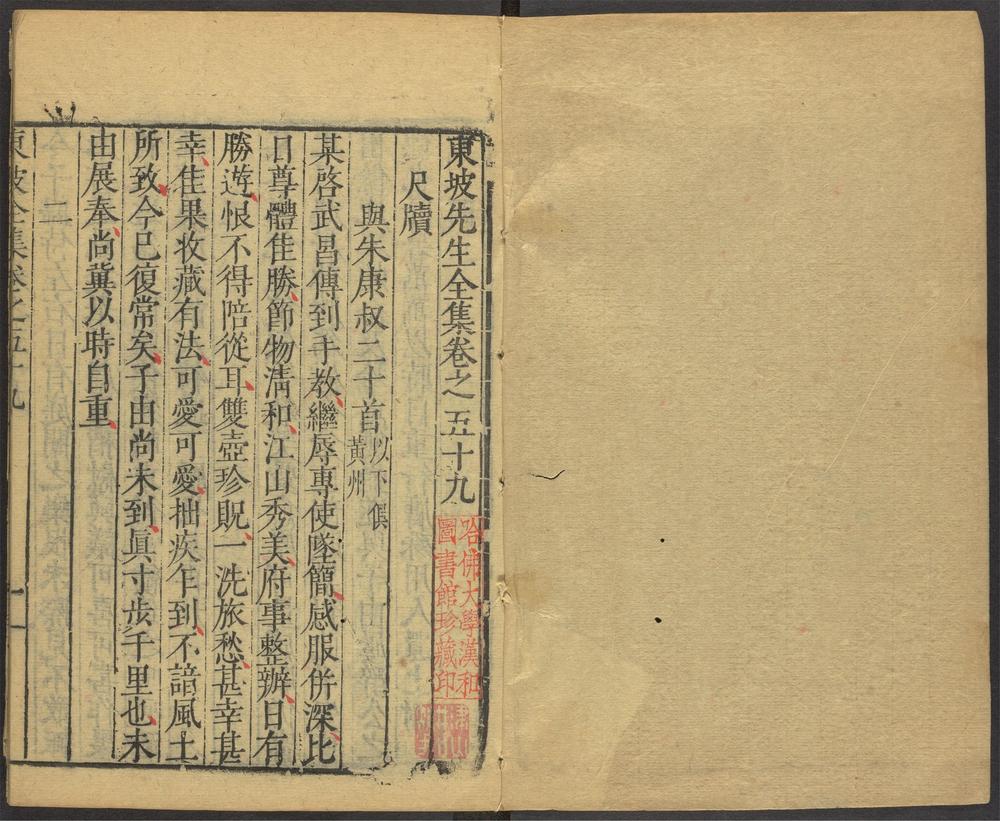 東坡先生全集卷之五十九
尺牘
與朱康叔二十首以下俱
黃州
某啓武昌傳到手教繼辱專使墜簡感服併深比
日尊體佳勝節物淸和江山秀美府事整辦日有
勝遊恨不得陪從耳雙壺珍貺一洗旅愁甚幸甚
幸佳果收藏有法可愛可愛拙疾乍到不諳風土
所致今已復常矣子由尚未到眞寸步千里也未
由展奉尚冀以時自重
東坡全集卷之五十九
一
哈佛大學漢和
圖書館珍藏印